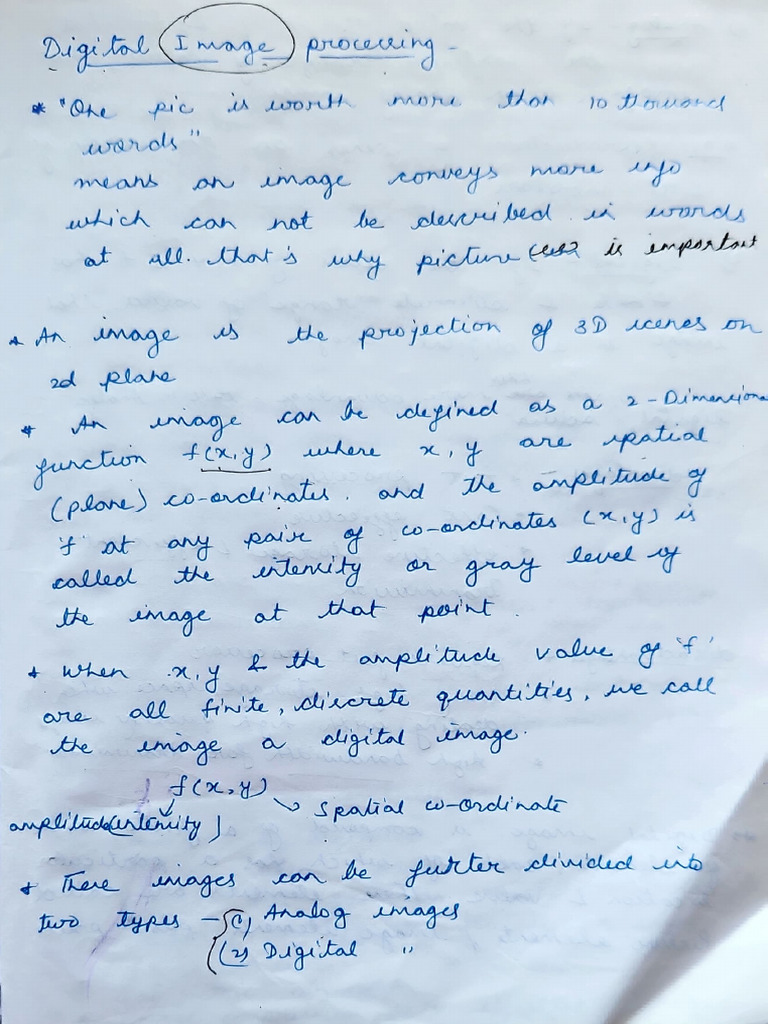 Digital Image processing -
* "One pic is worth more than 10 thousand
words"
means an image conveys more info
which can not be described in words
at all. that's why picture is important
* An image is the projection of 3D scenes on
2d plane
* An image can be defined as a 2-Dimensional
function f(x,y) where x, y are spatial
(plane) co-ordinates. and the amplitude of
'f' at any pair of co-ordinates (x,y) is
called the intensity or gray level of
the image at that point.
* when x,y & the amplitude value of 'f'
are all finite, discrete quantities, we call
the image a digital image.
f(x,y)
amplitude(intensity) spatial co-ordinate
* These images can be further divided into
two types - (1) Analog images
(2) Digital "